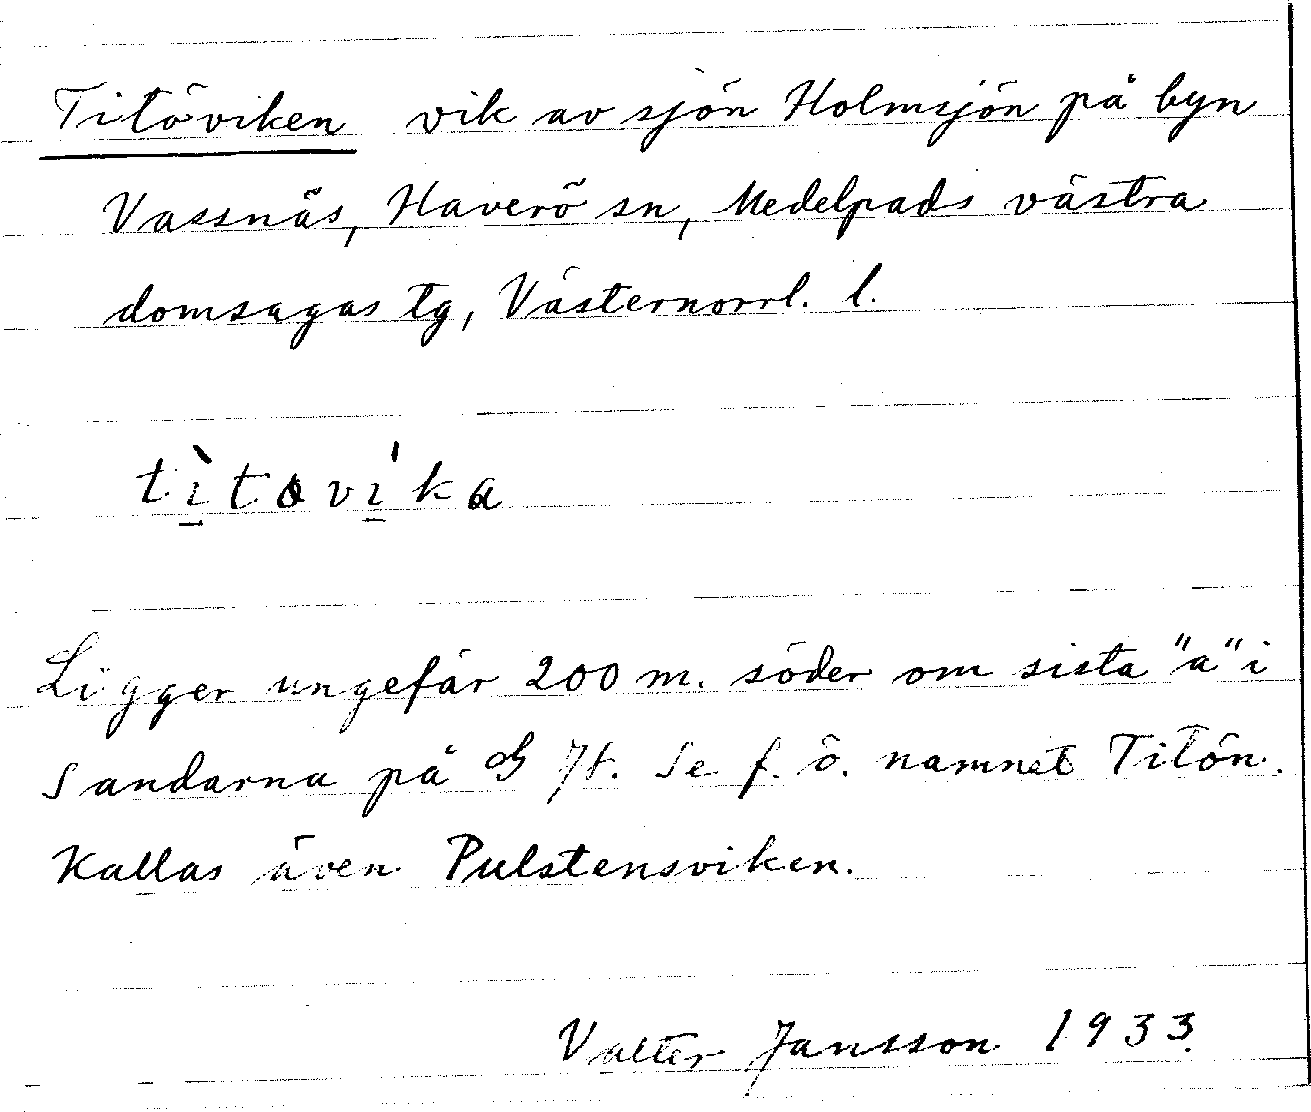 Titöviken vik av sjön Holmsjön på byn
Vassnäs, Haverö sn, Medelpads västra
domsagas tg, Västernorrl. l.
tìtovi̍ka
Ligger ungefär 200 m. söder om sista "a" i
Sandarna på Se f. ö. namnet Titön.
Kallas även Pulstensviken.
Valter Jansson 1933.